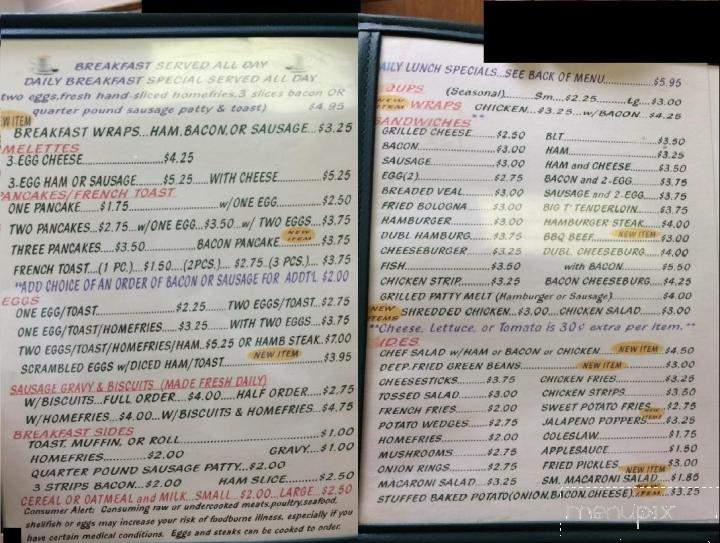 BREAKFAST SERVED ALL DAY
DAILY BREAKFAST SPECIAL SERVED ALL DAY
two eggs,fresh hand-sliced homefries,3 slices bacon OR
quarter pound sausage patty & toast) $4.95
W ITEM
BREAKFAST WRAPS...HAM,BACON,OR SAUSAGE...$3.25
MELETTES
3-EGG CHEESE...$4.25
3-EGG HAM OR SAUSAGE...$5.25...WITH CHEESE...$5.25
PANCAKES/FRENCH TOAST
ONE PANCAKE...$1.75...w/ONE EGG...$2.50
TWO PANCAKES...$2.75 w/ONE EGG...$3.50...w/ TWO EGGS...$3.75
THREE PANCAKES...$3.50 BACON PANCAKE NEW ITEM $3.75
FRENCH TOAST...(1 PC.)...$1.50...(2PCS.)...$2.75...(3 PCS.)...$3.75
**ADD CHOICE OF AN ORDER OF BACON OR SAUSAGE FOR ADDT'L $2.00
EGGS
ONE EGG/TOAST...$2.25...TWO EGGS/TOAST...$2.75
ONE EGG/TOAST/HOMEFRIES...$3.25...WITH TWO EGGS...$3.75
TWO EGGS/TOAST/HOMEFRIES/HAM..$5.25 OR HAMB STEAK.$7.00
SCRAMBLED EGGS w/DICED HAM/TOAST...NEW ITEM...$3.95
SAUSAGE GRAVY & BISCUITS (MADE FRESH DAILY)
W/BISCUITS...FULL ORDER...$4.00...HALF ORDER...$2.75
W/HOMEFRIES...$4.00...W/BISCUITS & HOMEFRIES...$4.75
BREAKFAST SIDES
TOAST, MUFFIN, OR ROLL...$1.00
HOMEFRIES...$2.00 GRAVY...$1.00
QUARTER POUND SAUSAGE PATTY...$2.00
3 STRIPS BACON...$2.00 HAM SLICE...$2.50
CEREAL OR OATMEAL and MILK...SMALL...$2.00...LARGE...$2.50
Consumer Alert: Consuming raw or undercooked meats,poultry,seafood,
shellfish or eggs may increase your risk of foodborne illness, especially if you
have certain medical conditions. Eggs and steaks can be cooked to order.
AILY LUNCH SPECIALS...SEE BACK OF MENU...$5.95
OUPS (Seasonal)...Sm...$2.25...Lg...$3.00
NEW ITEM WRAPS CHICKEN...$3.25...w/BACON...$4.25
SANDWICHES**
GRILLED CHEESE...$2.50 BLT...$3.50
BACON...$3.00 HAM...$3.25
SAUSAGE...$3.00 HAM and CHEESE...$3.50
EGG(2)...$2.75 BACON and 2-EGG...$3.75
BREADED VEAL...$3.00 SAUSAGE and 2-EGG...$3.75
FRIED BOLOGNA...$3.00 BIG T' TENDERLOIN...$3.75
HAMBURGER...$3.00 HAMBURGER STEAK...$4.00
DUBL HAMBURG...$3.75 BBQ BEEF...NEW ITEM $3.00
CHEESEBURGER...$3.25 DUBL CHEESEBURG...$4.00
FISH...$3.50 with BACON...$5.50
CHICKEN STRIP...$3.25 BACON CHEESEBURG...$4.25
GRILLED PATTY MELT (Hamburger or Sausage)...$4.00
NEW ITEMS SHREDDED CHICKEN...$3.00...CHICKEN SALAD...$3.00
**Cheese, Lettuce, or Tomato is 30¢ extra per item.**
IDES
CHEF SALAD w/HAM or BACON or CHICKEN...NEW ITEM $4.50
DEEP-FRIED GREEN BEANS...NEW ITEM...$3.00
CHEESESTICKS...$3.75 CHICKEN FRIES...$3.25
TOSSED SALAD...$3.00 CHICKEN STRIPS...$3.50
FRENCH FRIES...$2.00 SWEET POTATO FRIES...$2.75
POTATO WEDGES...$2.75 JALAPENO POPPERS NEW ITEM $3.25
HOMEFRIES...$2.00 COLESLAW...$1.75
MUSHROOMS...$2.75 APPLESAUCE...$1.50
ONION RINGS...$2.75 FRIED PICKLES...NEW ITEM $3.00
MACARONI SALAD...$3.25 SM. MACARONI SALAD...$1.85
STUFFED BAKED POTATO(ONION,BACON,CHEESE).ITEM...$3.25
menupix